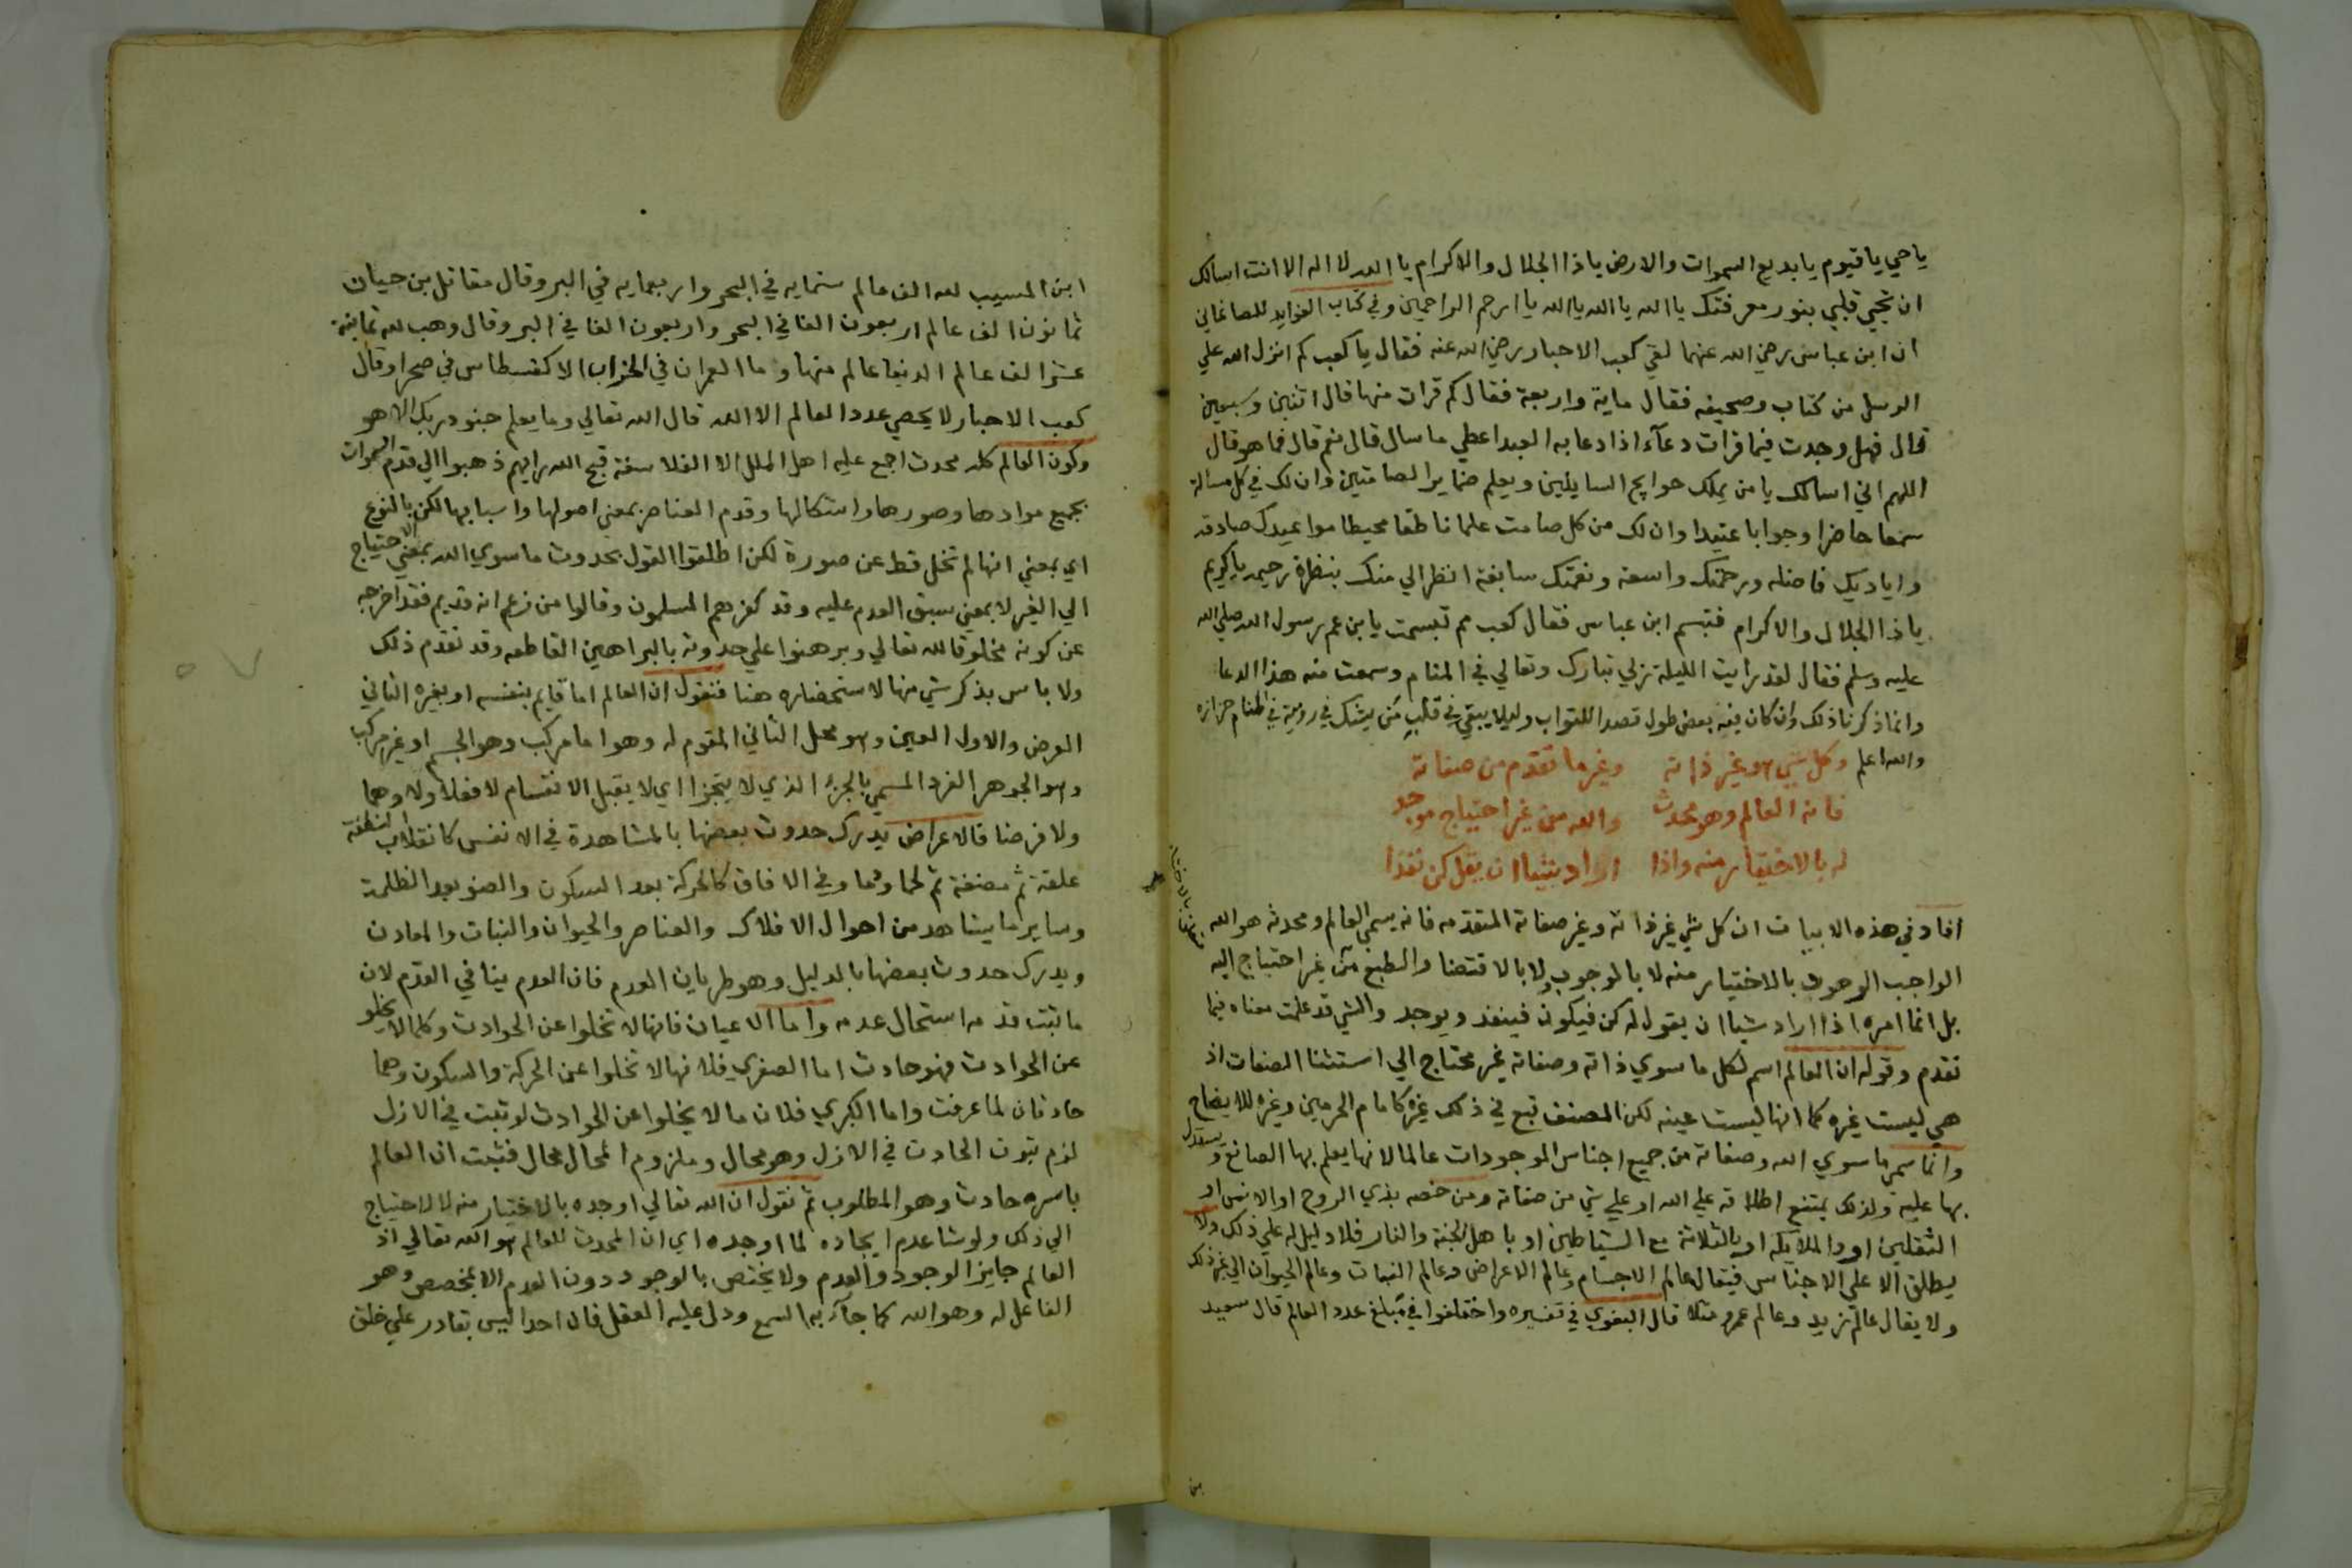 ياحي ياقيوم يابديع السموات والارض ياذا الجلال والاكرام يا الله لا اله الا انت اسالك
ان تحيي قلبي بنور معرفتك يا الله يا الله يا الله يا ارحم الراحمين وفي كتاب الفوايد للصاغاني
ان ابن عباس رضي الله عنهما لقي كعب الاحبار رضي الله عنه فقال يا كعب كم انزل الله علي
الرسل من كتاب وصحيفه فقال ماية واربعة فقال كم قرات منها قال اثنين وسبعين
قال فهل وجدت فيما قرات دعآء اذا دعا به العبد اعطي ما سال قال نعم قال فما هو قال
اللهم اني اسالك يا من يملك حوايج السايلين ويعلم ضماير الصامتين وان لك في كل مسالة
سمعا حاضرا وجوابا عتيدا وان لك من كل صامت علما ناطقا محيطا مواعيدك صادقه
واياديك فاضله ورحمتك واسعه ونعمتك سابغة انظر الي منك بنظرة رحيمه ياكريم
ياذا الجلال والاكرام فتبسم ابن عباس فقال كعب مم تبسمت يابن عم رسول الله صلي الله
عليه وسلم فقال لقد رايت الليلة ربي تبارك وتعالي في المنام وسمعت منه هذا الدعا
وانما ذكرنا ذلك وان كان فيه بعض طول قصدا للثواب وليلا يبقي في قلب من يشك في رؤيته في المنام حزازه
والله اعلم وكل شي هو غير ذاته وغير ما تقدم من صفاته
فانه العالم وهو محدث والله من غير احتياج موجد
له بالاختيار منه واذا اراد شيئا ان يقل كن نفذا
افاد في هذه الابيات ان كل شي غير ذاته وغير صفاته المتقدمه فانه يسمي العالم ومحدثه هو الله
الواجب الوجود بالاختيار منه لا بالوجوب ولا بالاقتضا والطبع من غير احتياج اليه
بل انما امره اذا اراد شيا ان يقول له كن فيكون فينفذ ويوجد والشي قد علمت معناه فيما
تقدم وقوله ان العالم اسم لكل ما سوي ذاته وصفاته غير محتاج الي استثنا الصفات اذ
هي ليست غيره كما انها ليست عينه لكن المصنف تبع في ذلك غيره كامام الحرمين وغيره للايضاح
وانما سمي ما سوي الله وصفاته من جميع اجناس الموجودات عالما لانها يعلم بها الصانع ويستدل
بها عليه ولذلك يمتنع اطلاقه علي الله او علي شي من صفاته ومن خصه بذي الروح او الانس او
الثقلين او والملايكه او بالثلاثة مع الشياطين او باهل الجنة والنار فلا دليل له علي ذلك ولا
يطلق الا علي الاجناس فيقال عالم الاجسام وعالم الاعراض وعالم النبات وعالم الحيوان الي غير ذلك
ولا يقال عالم زيد وعالم عمرو مثلا قال البغوي في تفسيره واختلفوا في مبلغ عدد العالم قال سعيد
ابن المسيب لله الف عالم ستمايه في البحر واربعمايه في البر وقال مقاتل بن حيان
ثمانون الف عالم اربعون الفا في البحر واربعون الفا في البر وقال وهب لله ثمانية
عشر الف عالم الدنيا عالم منها وما العمران في الخراب الا كفسطاس في صحرا وقال
كعب الاحبار لا يحصي عدد العالم الا الله قال الله تعالي وما يعلم جنود ربك الا هو
وكون العالم كله محدث اجمع عليه اهل الملل الا الفلاسفة قبح الله رايهم ذهبوا الي قدم السموات
بجميع موادها وصورها واشكالها وقدم العناصر بمعني اصولها واسبابها لكن بالنوع
اي بمعني انها لم تخل قط عن صورة لكن اطلقوا القول بحدوث ما سوي الله بمعني الاحتياج
الي الغير لا بمعني سبق العدم عليه وقد كفرهم المسلمون وقالوا من زعم انه قديم فقد اخرجه
عن كونه مخلوقا لله تعالي وبرهنوا علي حدوثه بالبراهين القاطعه وقد تقدم ذلك
ولا باس بذكر شي منها لاستحضاره هنا فنقول ان العالم اما قايم بنفسه او بغيره الثاني
العرض والاول العين وهو محل الثاني المقوم له وهو اما مركب وهو الجسم او غير مركب
وهو الجوهر الفرد المسمي بالجزء الذي لا يتجزا اي لا يقبل الانقسام لا فعلا ولا وهما
ولا فرضا فالاعراض يدرك حدوث بعضها بالمشاهدة في الانفس كانقلاب النطفة
علقة ثم مضغة ثم لحما ودما وفي الافاق كالحركة بعد السكون والضو بعد الظلمة
وساير ما يشاهد من احوال الافلاك والعناصر والحيوان والنبات والمعادن
ويدرك حدوث بعضها بالدليل وهو طريان العدم فان العدم ينافي القدم لان
ما ثبت قدمه استحال عدمه واما الاعيان فانها لا تخلوا عن الحوادث وكلما لا يخلو
عن الحوادث فهو حادث اما الصغري فلانها لا تخلوا عن الحركة والسكون وهما
حادثان لما عرفت واما الكبري فلان ما لا يخلوا عن الحوادث لو ثبت في الازل
لزم ثبوت الحادث في الازل وهو محال وملزوم المحال محال فثبت ان العالم
باسره حادث وهو المطلوب ثم نقول ان الله تعالي اوجده بالاختيار منه لا لاحتياج
الي ذلك ولو شا عدم ايجاده لما اوجده اي ان المحدث للعالم هو الله تعالي اذ
العالم جايز الوجود والعدم ولا يختص بالوجود دون العدم الا بمخصص وهو
الفاعل له وهو الله كما جآء به السمع ودل عليه العقل فان احدا ليس بقادر علي خلق